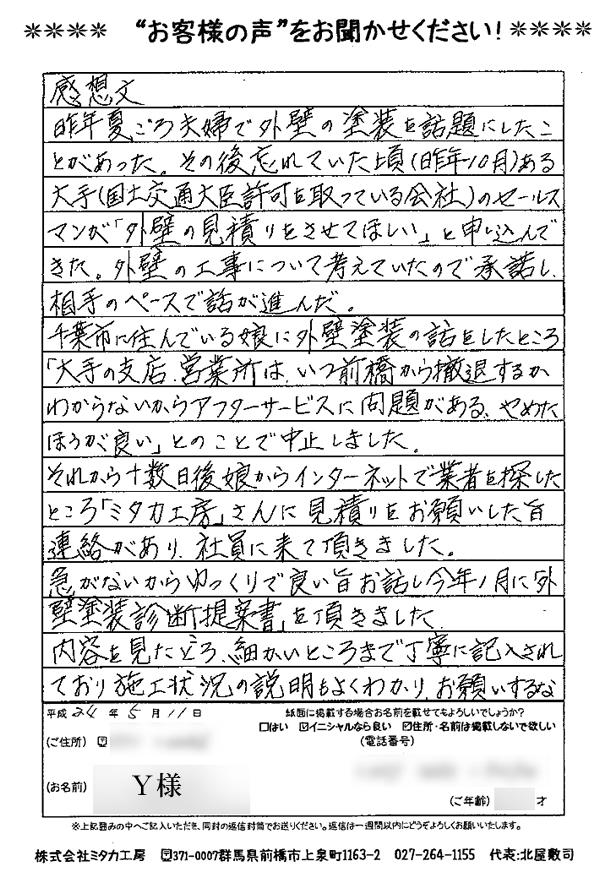 ✻✻✻✻ “お客様の声”をお聞かせください! ✻✻✻✻
感想文
昨年夏ごろ夫婦で外壁の塗装を話題にしたこ
とがあった。その後忘れていた頃(昨年10月)ある
大手(国土交通大臣許可を取っている会社)のセールス
マンが「外壁の見積りをさせてほしい」と申し込んで
きた。外壁の工事について考えていたので承諾し、
相手のペースで話が進んだ。
千葉市に住んでいる娘に外壁塗装の話をしたところ
「大手の支店、営業所は、いつ前橋から撤退するか
わからないからアフターサービスに問題がある、やめた
ほうが良い」とのことで中止しました。
それから十数日後娘からインターネットで業者を探した
ところ「ミタカ工房」さんに見積りをお願いした旨
連絡があり、社員に来て頂きました。
急がないからゆっくりで良い旨お話し今年1月に「外
壁塗装診断提案書」を頂きました。
内容を見たところ、細かいところまで丁寧に記入され
ており施工状況の説明もよくわかり、お願いするな
平成 24 年 5 月 11 日 紙面に掲載する場合お名前を載せてもよろしいでしょうか?
□はい ☑イニシャルなら良い ☑住所・名前は掲載しないで欲しい
(ご住所) 〒 (電話番号)
(お名前) Y様
(ご年齢) 才
※上記囲みの中へご記入いただき、同封の返信封筒でお送りください。返信は一週間以内にどうぞよろしくお願いいたします。
株式会社ミタカ工房 〒371-0007群馬県前橋市上泉町1163-2 027-264-1155 代表:北屋敷司